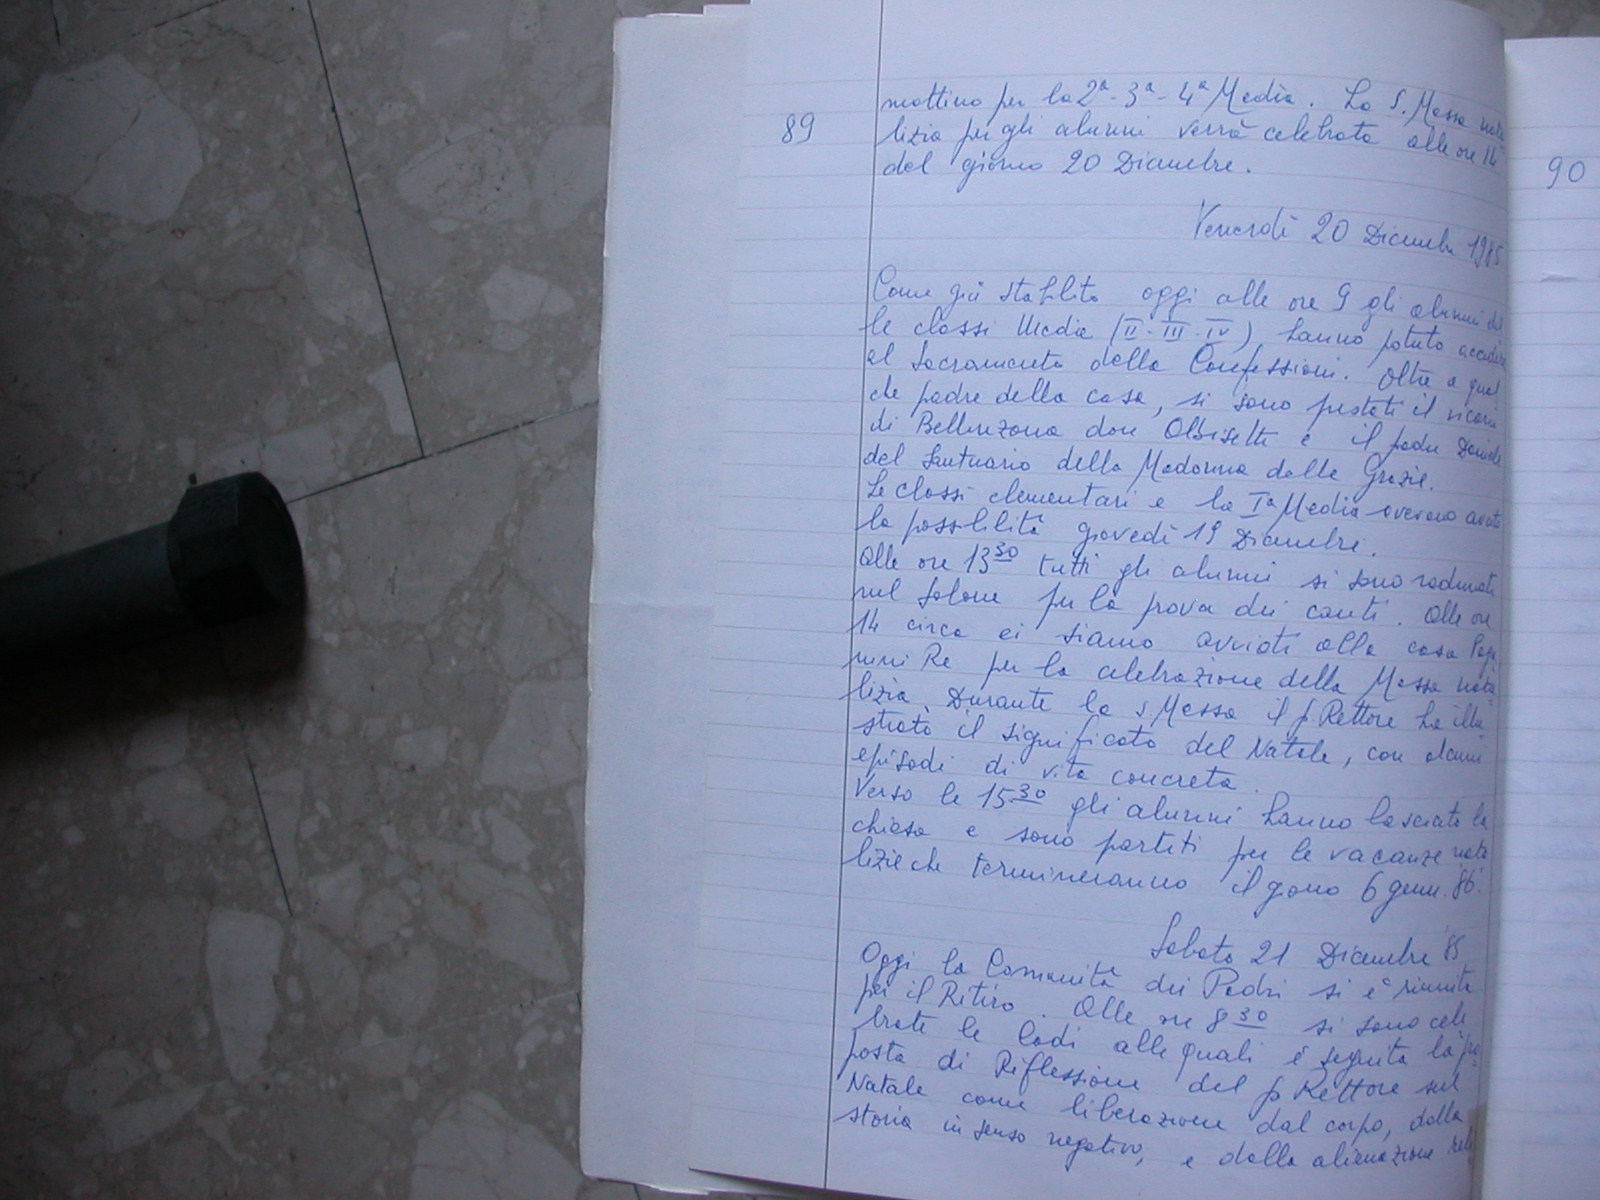 89
mattino per la 2ª - 3ª - 4ª Media. La S. Messa nata
lizia per gli alunni verrà celebrata alle ore 14
del giorno 20 Dicembre.
90
Venerdì 20 Dicembre 1985
Come già stabilito oggi alle ore 9 gli alunni del
le classi Media (II - III - IV) hanno potuto accedere
al Sacramento della Confessioni. Oltre a qual
che padre della casa, si sono prestati il vicario
di Bellinzona don Olbisetti e il padre Daniele
del Santuario della Madonna delle Grazie.
Le classi elementari e la Iª Media avevano avuto
la possibilità giovedì 19 Dicembre.
Alle ore 13 30 tutti gli alunni si sono radunati
nel Salone per la prova dei canti. Alle ore
14 circa ci siamo avviati alla casa Paga
mini Re per la celebrazione della Messa nata=
lizia. Durante la S Messa il p Rettore ha illu
strato il significato del Natale, con alcuni
episodi di vita concreta.
Verso le 15 30 gli alunni hanno lasciato la
chiesa e sono partiti per le vacanze nata
lizie che termineranno il giorno 6 genn. 86.
Sabato 21 Dicembre 85
Oggi la Comunità dei Padri si è riunita
per il Ritiro. Alle ore 8 30 si sono cele
brate le lodi alle quali è seguita la pro=
posta di Riflessione del p Rettore sul
Natale come liberazione dal corpo, dalla
storia in senso negativo, e dalla alienazione